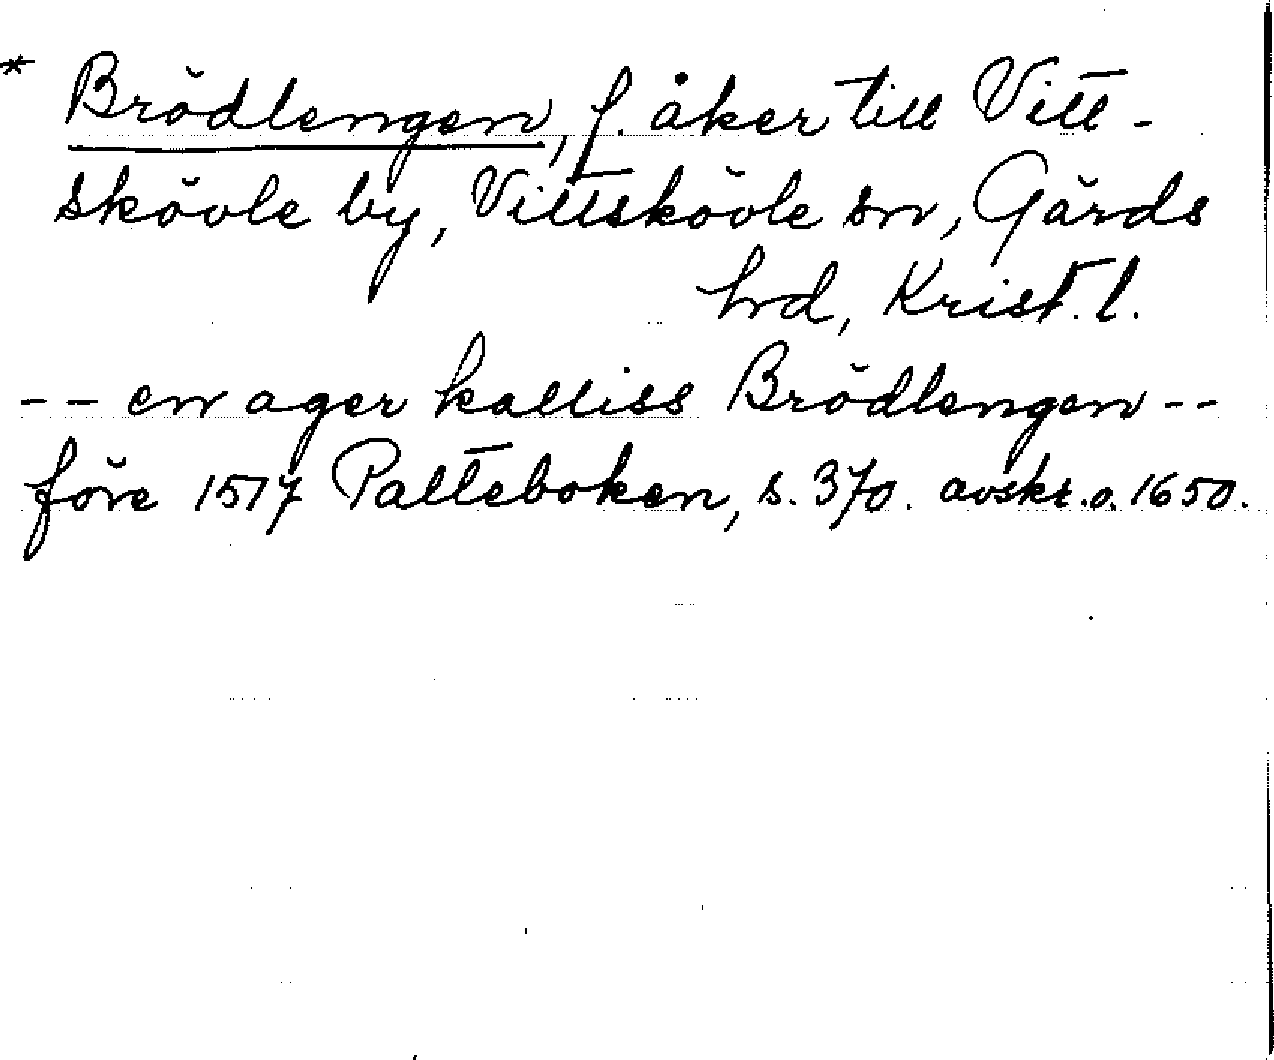 * Brödlengen, f. åker till Vitt-
skövle by, Vittskövle sn, Gärds
hrd, Krist. l.
-- en ager kalliss Brödlengen --
före 1517 Palteboken, s. 370. avskr. o. 1650.